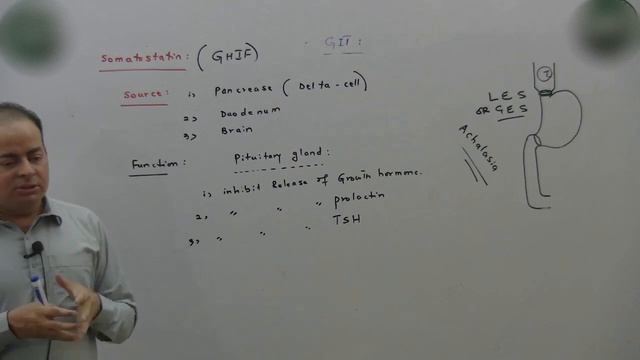 Somatostatin: (GHIF)
GIT:
Source: 1) Pancrease (Delta-cell)
2) Duodenum
3) Brain
Function: Pituitary gland:
1) inhibit Release of Growth hormone.
2) " " " prolactin
3) " " " TSH
LES
OR GES
Achalasia